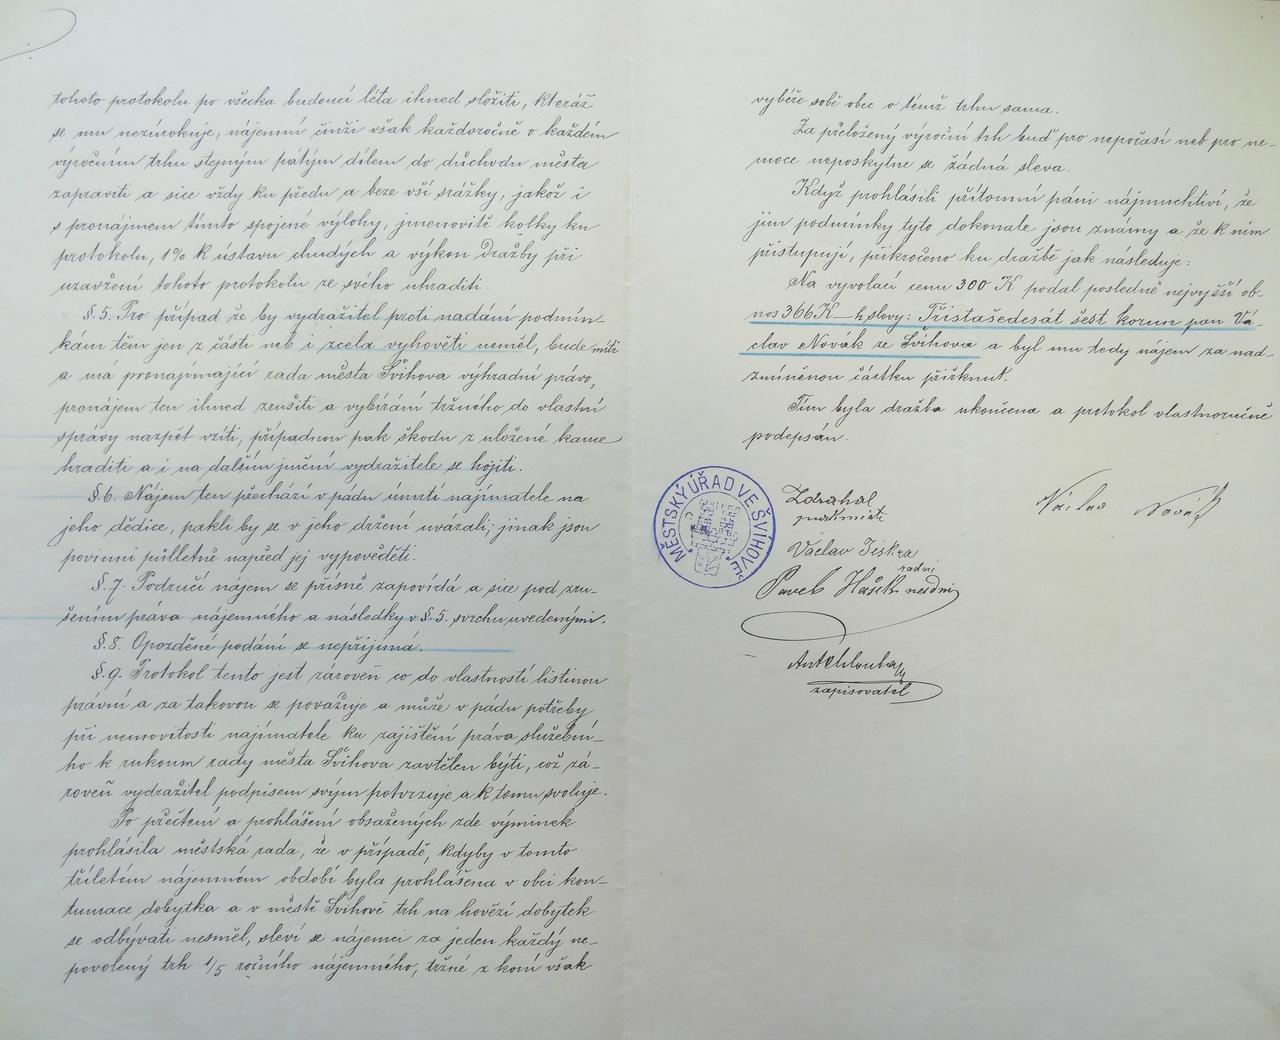 tohoto protokolu po všecka budoucí léta ihned složiti, kteráž
se mu nezúrokuje, nájemní činži však každoročně o každém
výročním trhu stejným pátým dílem do důchodu města
zapraviti a sice vždy ku předu a beze vší srážky, jakož i
s pronájmem tímto spojené výlohy, jmenovitě kolky ku
protokolu, 1% k ústavu chudých a výkon dražby při
uzavření tohoto protokolu ze svého uhraditi.
§. 5. Pro případ že by vydražitel proti nadání podmín-
kám těm jen z části neb i zcela vyhověti neměl, bude míti
a má pronajímající rada města Švihova výhradní právo,
pronájem ten ihned zrušiti a vybírání tržného do vlastní
správy nazpět vzíti, případnou pak škodu z uložené kauce
hraditi a i na dalším jmění vydražitele se hojiti.
§. 6. Nájem ten přechází v pádu úmrtí najímatele na
jeho dědice, pakli by se v jeho držení uvázali; jinak jsou
povinni půlletně napřed jej vypověděti.
§. 7. Područí nájem se přísně zapovídá a sice pod zru-
šením práva nájemného a následky v §. 5. svrchu uvedenými.
§. 8. Opozděné podání se nepřijímá.
§. 9. Protokol tento jest zároveň co do vlastností listinou
právní a za takovou se považuje a může v pádu potřeby
při nemovitosti najímatele ku zajištění práva služební-
ho k rukoum rady města Švihova zavtělen býti, což zá-
roveň vydražitel podpisem svým potvrzuje a k tomu svoluje.
Po přečtení a prohlášení obsažených zde výminek
prohlásila městská rada, že v případě, kdyby v tomto
tříletém nájemném období byla prohlášena v obci kon-
tumace dobytka a v městě Švihově trh na hovězí dobytek
se odbývati nesměl, sleví se nájemci za jeden každý ne-
povolený trh 1/5 ročního nájemného, tržné z koní však
vybéře sobě obec o témž trhu sama.
Za přeložený výroční trh buď pro nepočasí neb pro ne-
moce neposkytne se žádná sleva.
Když prohlásili přítomní páni nájmuchtiví, že
jim podmínky tyto dokonale jsou známy a že k nim
přistupují, přikročeno ku dražbě jak následuje:
Na vyvolací cenu 300 K podal posledně nejvyšší ob-
nos 366 K — h slovy: Třistašedesát šest korun pan Vá-
clav Novák ze Švihova a byl mu tedy nájem za nad-
zmíněnou částku přiřknut.
Tím byla dražba ukončena a protokol vlastnoručně
podepsán.
MĚSTSKÝ ÚŘAD VE ŠVIHOVĚ
Zdrahal
Václav Novák
Václav Jiskra
radní
Pavel Hašek radní
Ant. Chloubа
zapisovatel